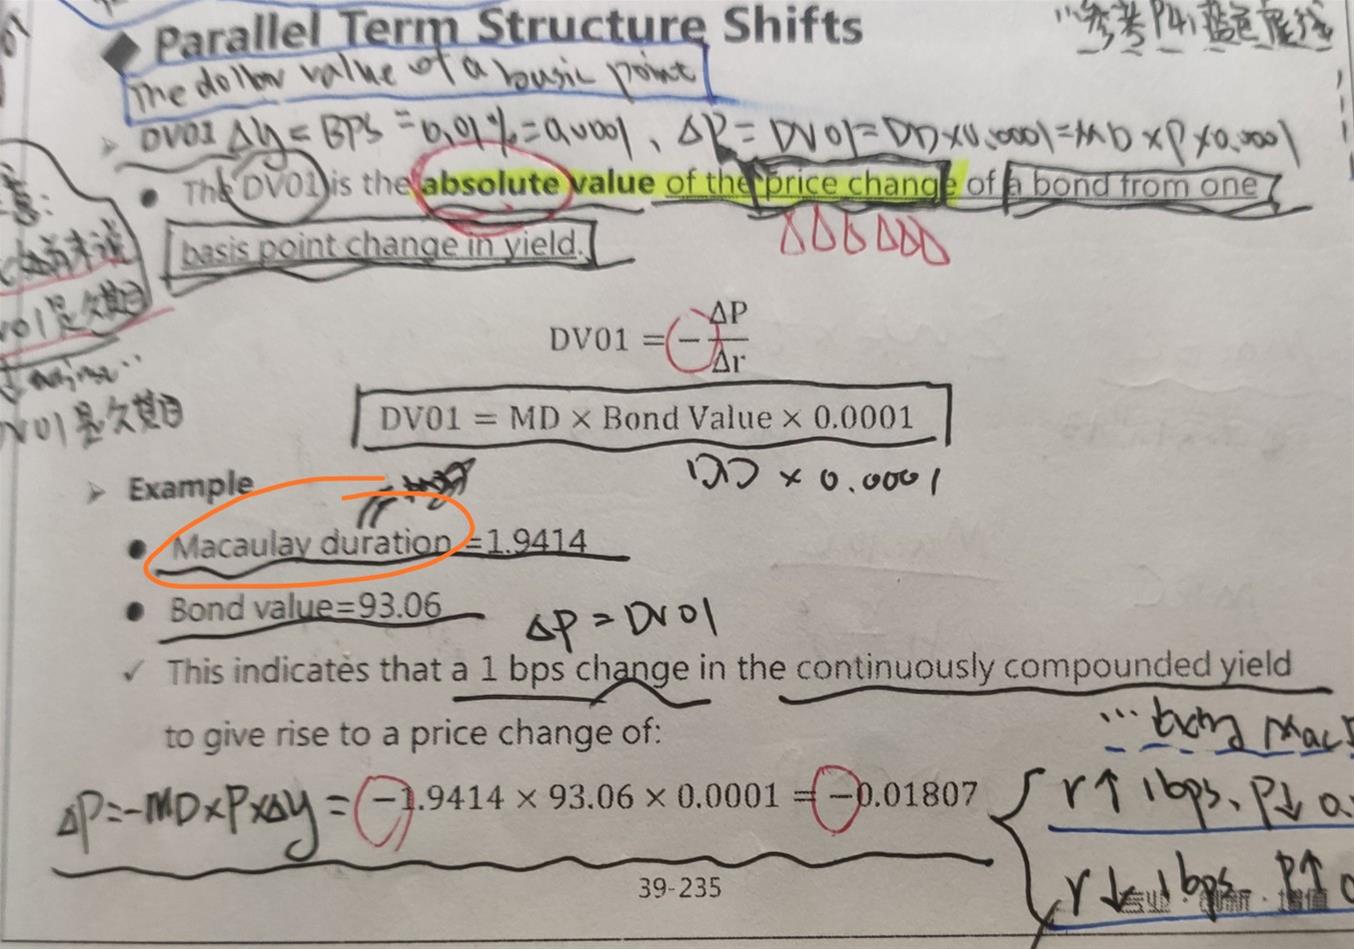 Parallel Term Structure Shifts
The dollar value of a basic point
DV01 Δy = BPS = 0.01% = 0.0001、ΔP = DV01 = DD×0.0001 = MD×P×0.0001
The DV01 is the absolute value of the price change of a bond from one
basis point change in yield.
DV01 = −ΔP/Δr
DV01 = MD × Bond Value × 0.0001
DD × 0.0001
Example
Macaulay duration =1.9414
Bond value=93.06
ΔP = DV01
✓ This indicates that a 1 bps change in the continuously compounded yield
to give rise to a price change of:
ΔP=-MD×P×Δy = −1.9414 × 93.06 × 0.0001 = −0.01807
r↑ 1bps、P↓
r↓ 1bps、P↑
39-235